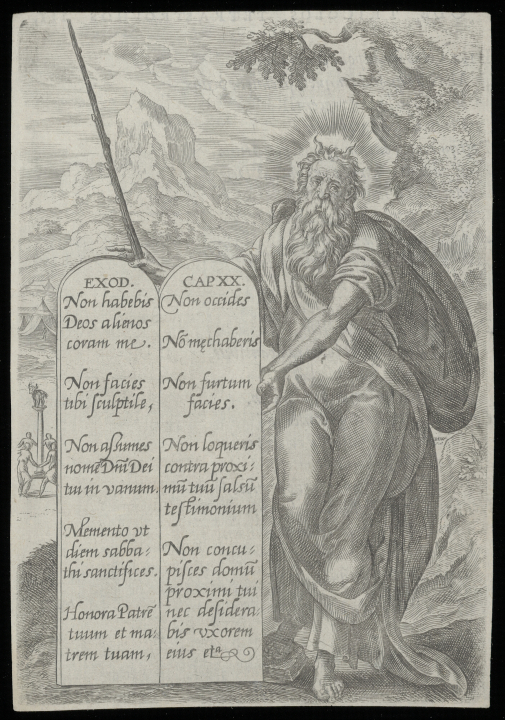 EXOD.
Non habebis
Deos alienos
coram me.
Non facies
tibi sculptile,
Non assumes
nomē Dnī Dei
tui in vanum.
Memento vt
diem sabba:
thi sanctifices.
Honora Patrē
tuum et ma:
trem tuam,
CAP XX.
Non occides
Nō męchaberis
Non furtum
facies.
Non loqueris
contra proxi:
mū tuū falsū
testimonium
Non concu:
pisces domū
proximi tui
nec desidera:
bis vxorem
eius etᵃ